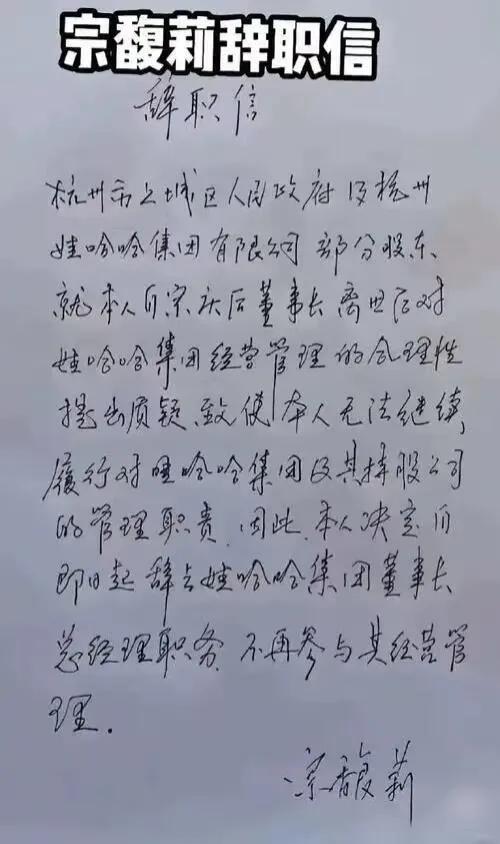 宗馥莉辞职信
辞职信
杭州市上城区人民政府及杭州
娃哈哈集团有限公司部分股东、
就本人自宗庆后董事长离世后对
娃哈哈集团经营管理的合理性
提出质疑,致使本人无法继续
履行对娃哈哈集团及其持股公司
的管理职责.因此,本人决定自
即日起辞去娃哈哈集团董事长
总经理职务,不再参与其经营管
理.
宗馥莉